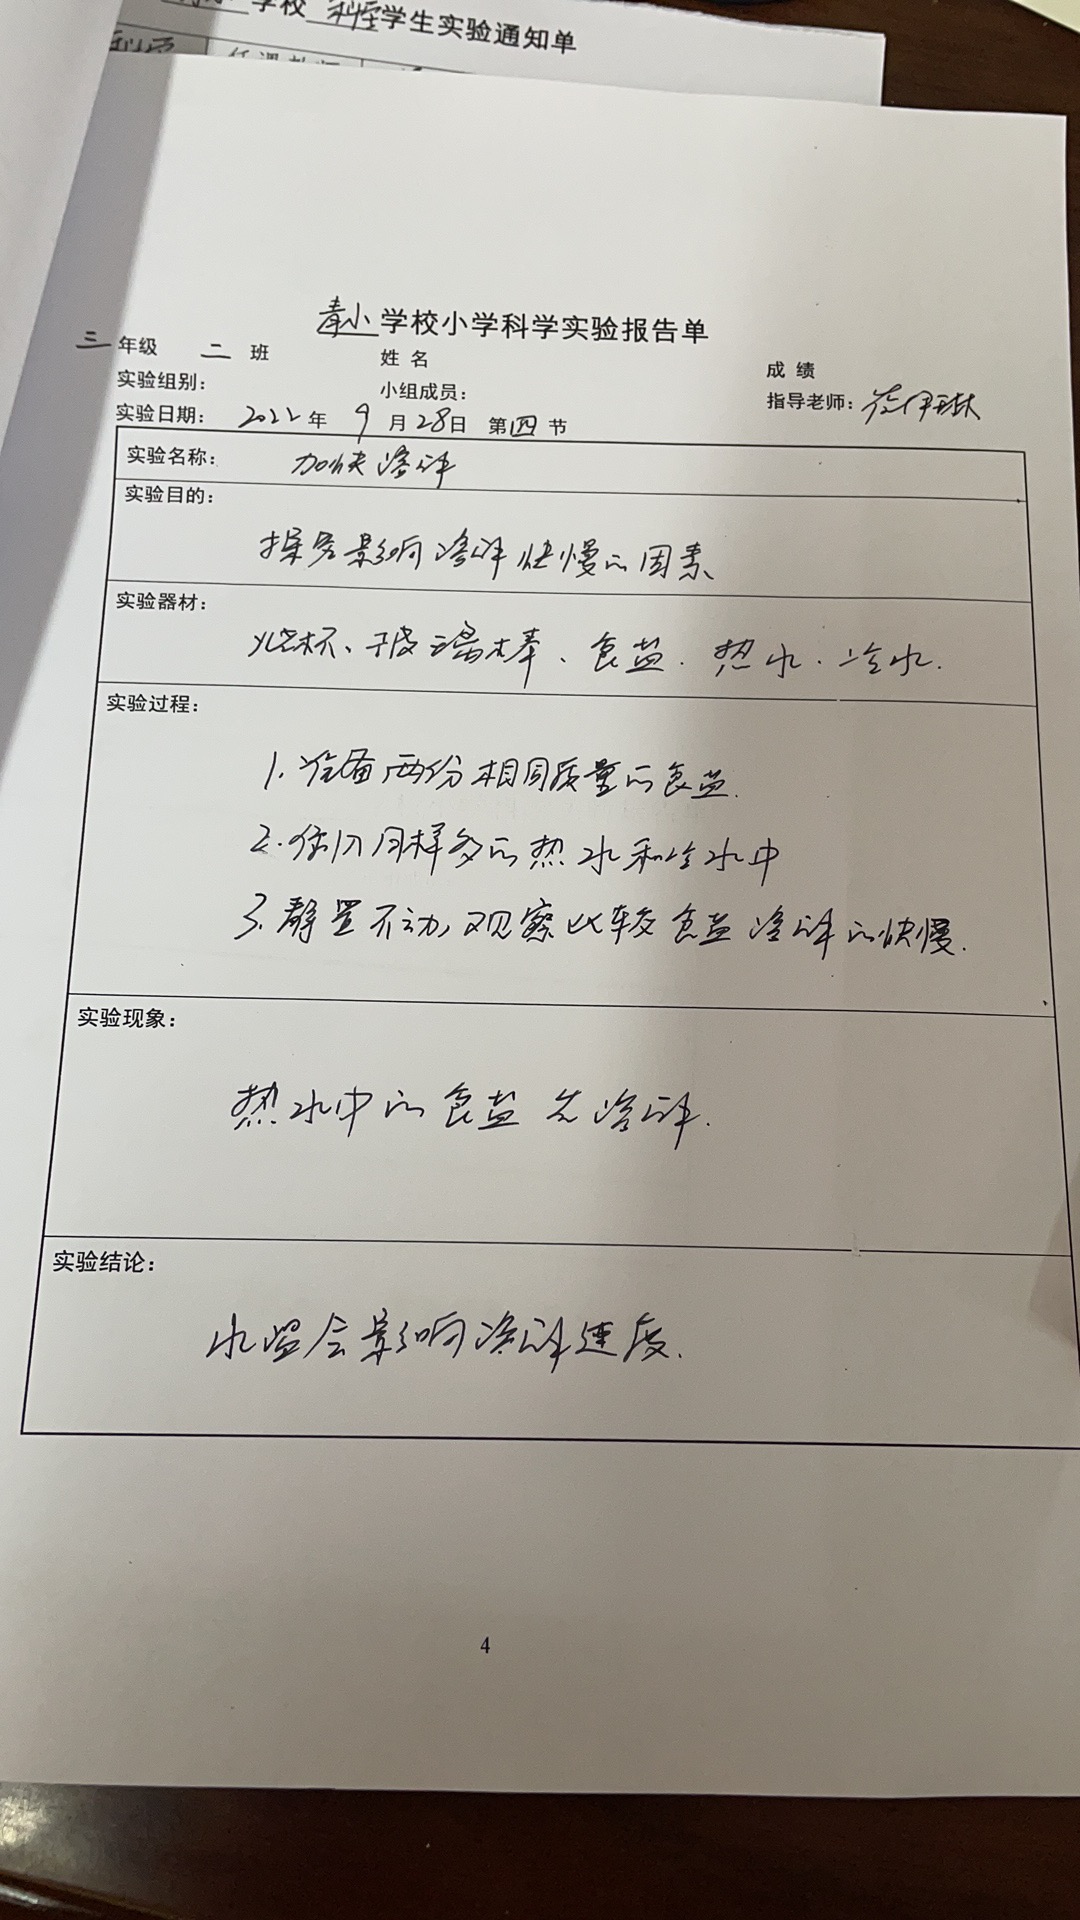 学校 科学 学生实验通知单
任课教师
青小学校小学科学实验报告单
三年级 二班 姓名 成绩
实验组别： 小组成员： 指导老师：
实验日期：2022年9月28日 第四节
实验名称： 加快溶解
实验目的：
探究影响溶解快慢的因素
实验器材：
烧杯、玻璃棒、食盐、热水、冷水.
实验过程：
1.准备两份相同质量的食盐.
2.倒入同样多的热水和冷水中
3.静置不动,观察比较食盐溶解的快慢.
实验现象：
热水中的食盐先溶解.
实验结论：
水温会影响溶解速度.
4